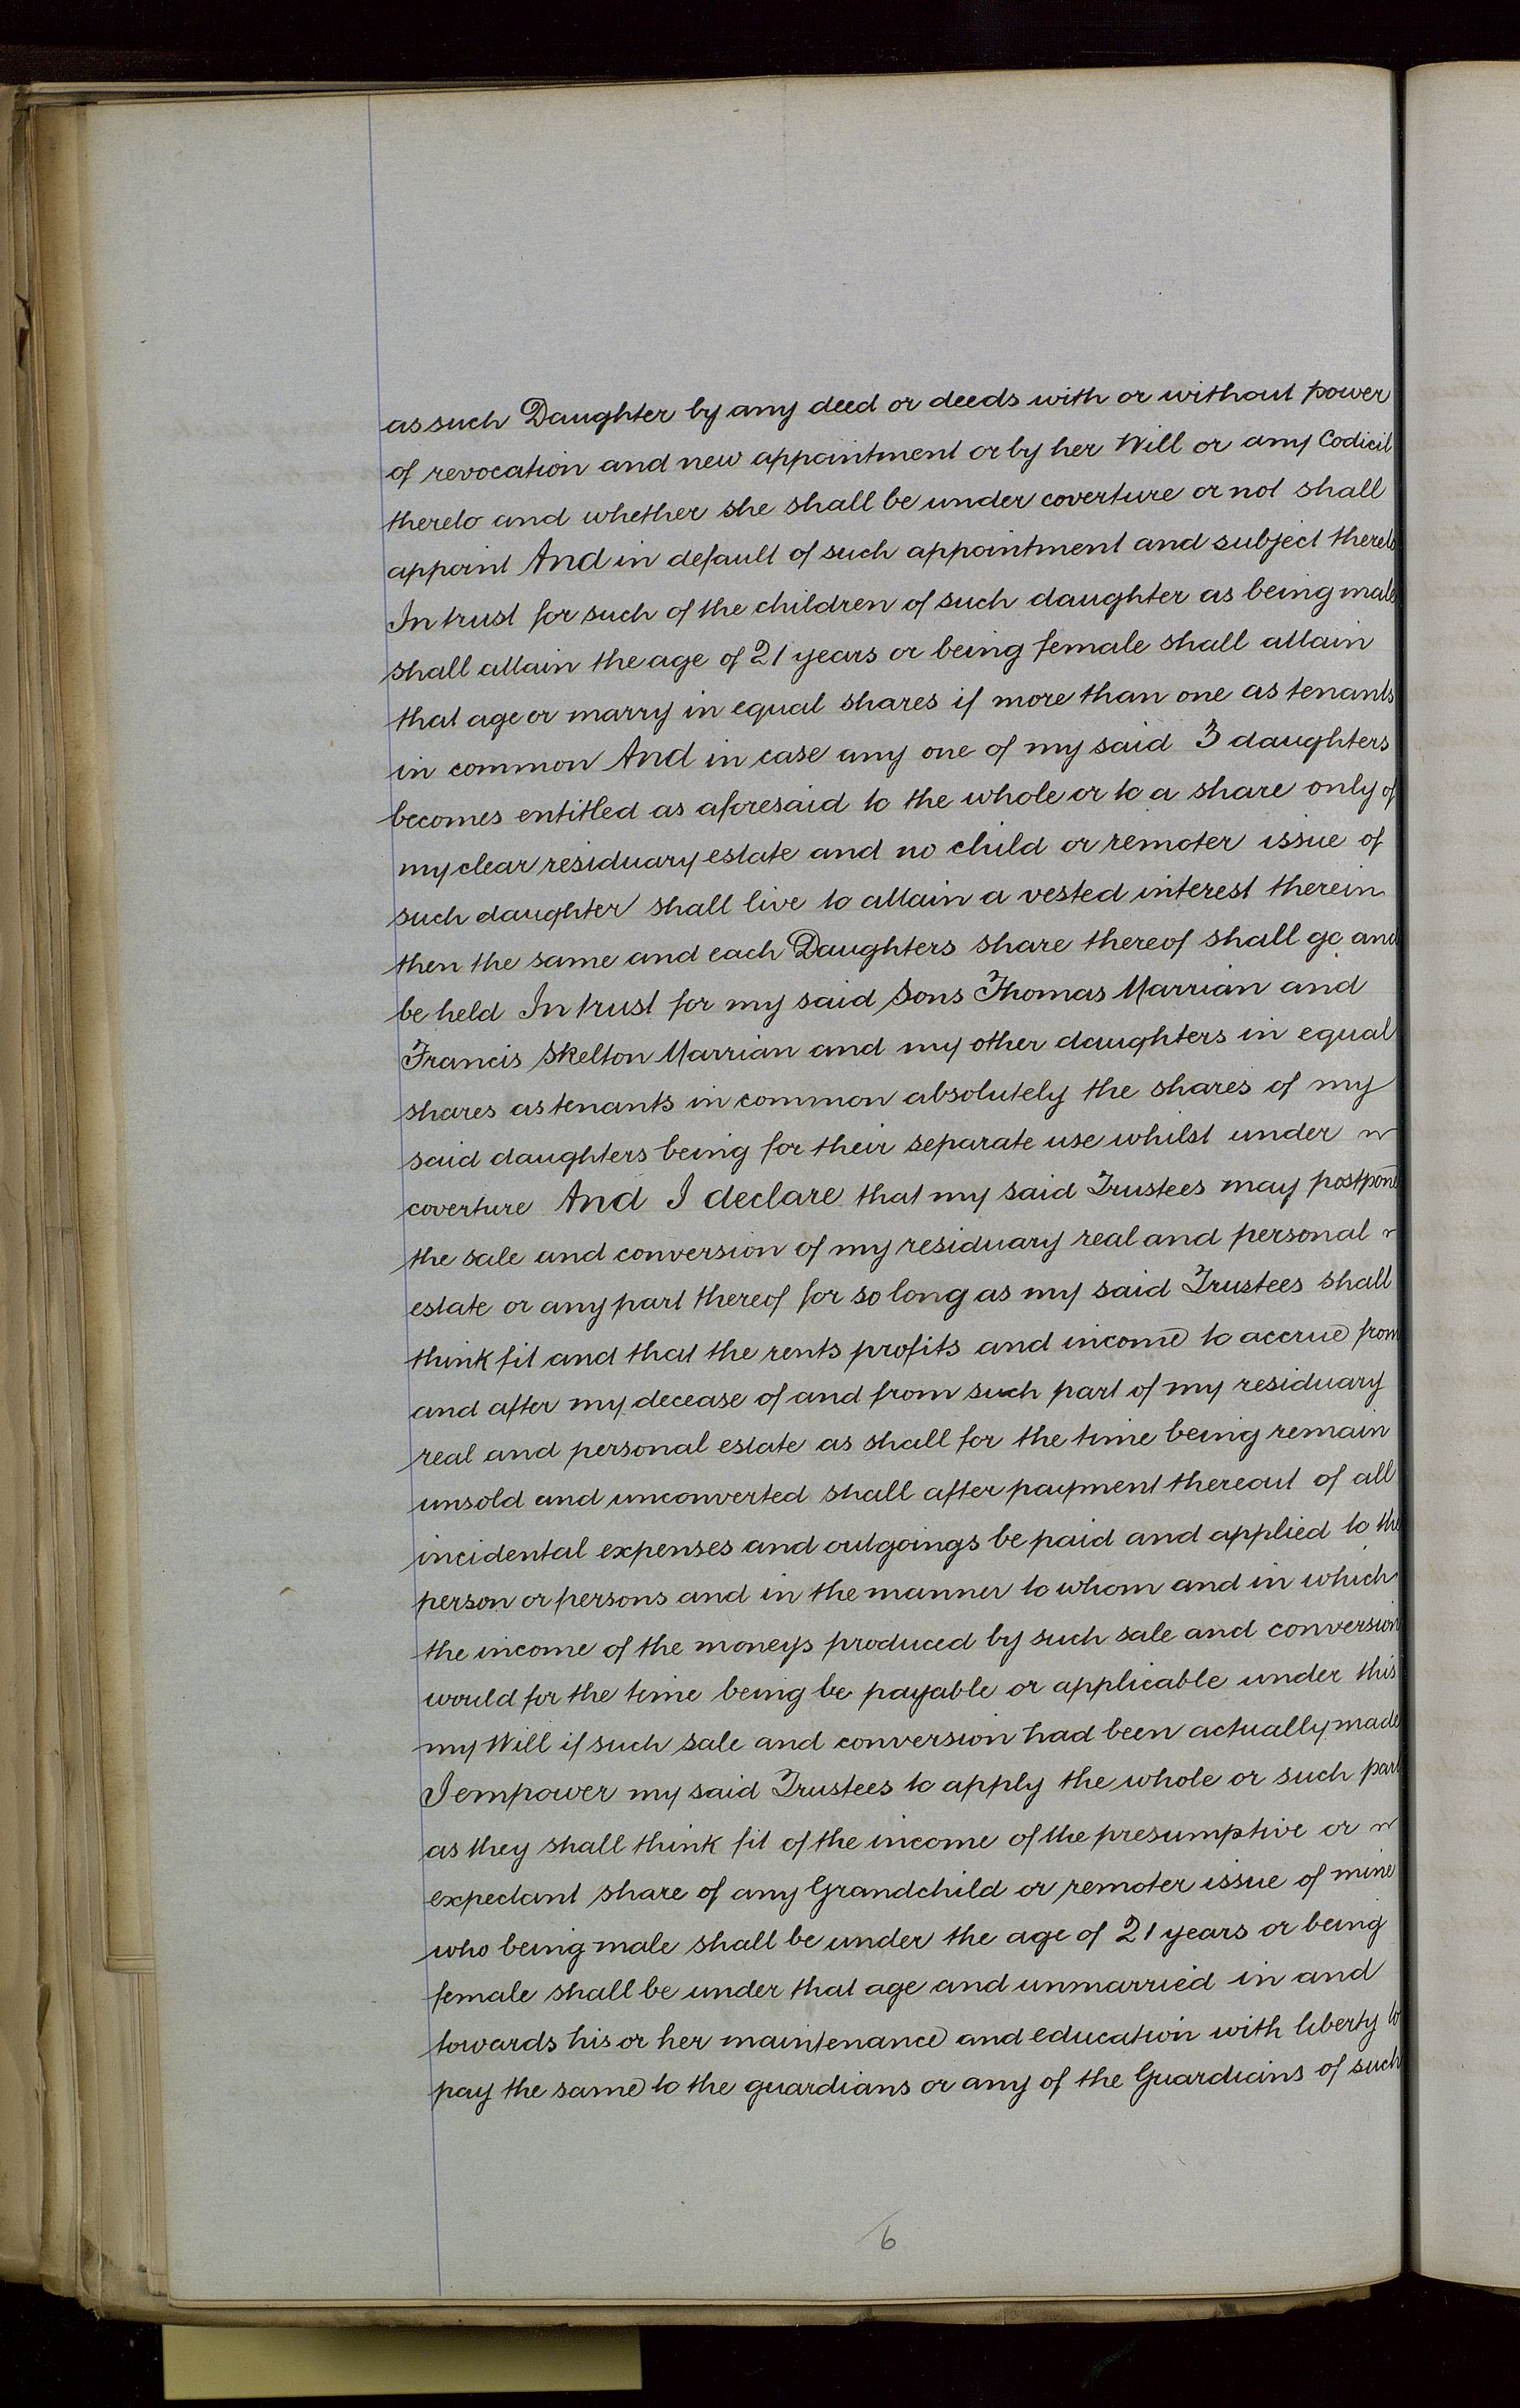 as such Daughter by any deed or deeds with or without power
of revocation and new appointment or by her Will or any Codicil
thereto and whether she shall be under coverture or not shall
appoint And in default of such appointment and subject thereto
In trust for such of the children of such daughter as being male
shall attain the age of 21 years or being female shall attain
that age or marry in equal shares if more than one as tenants
in common And in case any one of my said 3 daughters
becomes entitled as aforesaid to the whole or to a share only of
my clear residuary estate and no child or remoter issue of
such daughter shall live to attain a vested interest therein
then the same and each Daughters share thereof shall go and
be held In trust for my said Sons Thomas Marrian and
Francis Skelton Marrian and my other daughters in equal
shares as tenants in common absolutely the shares of my
said daughters being for their separate use whilst under
coverture And I declare that my said Trustees may postpone
the sale and conversion of my residuary real and personal
estate or any part thereof for so long as my said Trustees shall
think fit and that the rents profits and income to accrue from
and after my decease of and from such part of my residuary
real and personal estate as shall for the time being remain
unsold and unconverted shall after payment thereout of all
incidental expenses and outgoings be paid and applied to the
person or persons and in the manner to whom and in which
the income of the moneys produced by such sale and conversion
would for the time being be payable or applicable under this
my Will if such sale and conversion had been actually made
I empower my said Trustees to apply the whole or such part
as they shall think fit of the income of the presumptive or
expectant share of any Grandchild or remoter issue of mine
who being male shall be under the age of 21 years or being
female shall be under that age and unmarried in and
towards his or her maintenance and education with liberty to
pay the same to the guardians or any of the Guardians of such
6